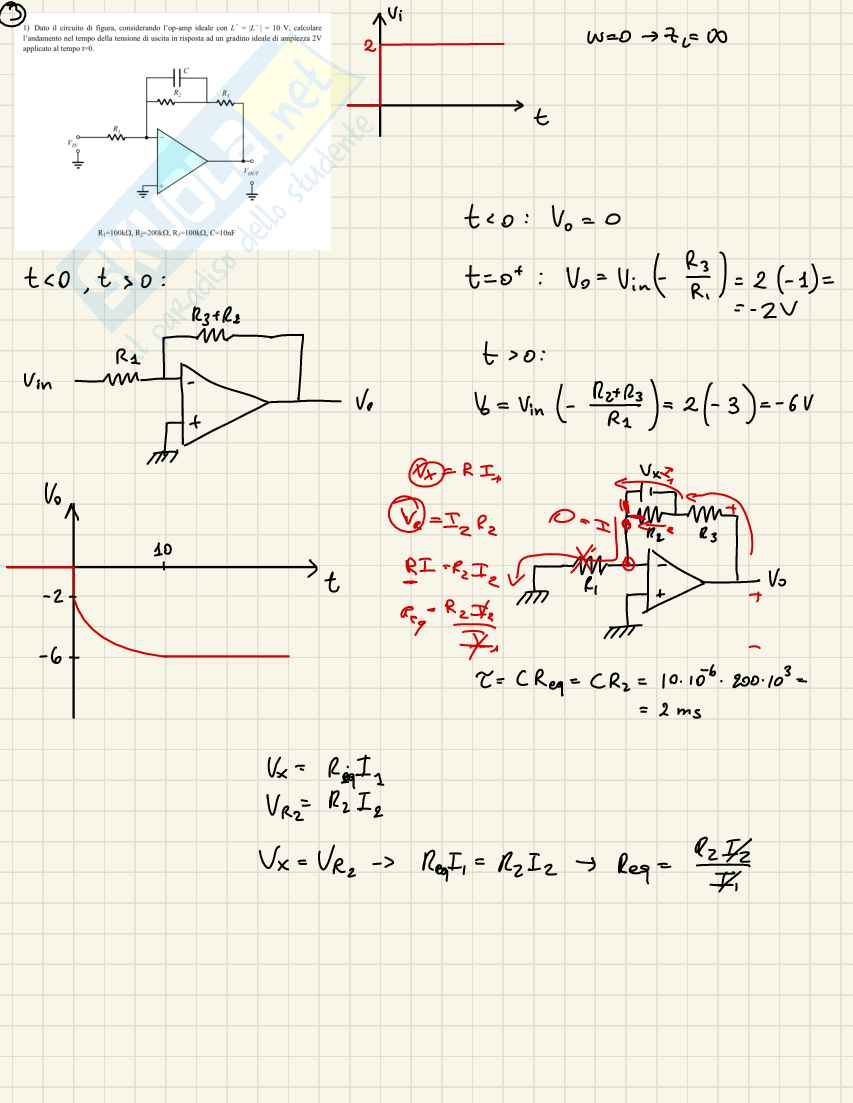 1) Dato il circuito di figura, considerando l'op-amp ideale con L⁺ = |L⁻| = 10 V, calcolare
l'andamento nel tempo della tensione di uscita in risposta ad un gradino ideale di ampiezza 2V
applicato al tempo t=0.
C
R₂
R₃
R₁
V_IN
V_OUT
R₁=100kΩ, R₂=200kΩ, R₃=100kΩ, C=10nF
SKUOLA.net
il paradiso dello studente
Vi
2
t
ω=0 → Z_c = ∞
t<0 : V₀ = 0
t=0⁺ : V₀ = Vin(- R₃/R₁) = 2 (-1) =
= -2V
t<0, t>0:
R₃+R₂
R1
Vin
-
+
V₀
t >0:
V₀ = Vin (- R₂+R₃/R₁) = 2(-3) = -6V
V₀
10
t
-2
-6
Vx = R I₁
= I₂ R₂
RI = R₂I₂
Req = R₂I₂/I₁
Vx
I₁
0 = I
R₂
R₃
+
R₁
-
+
V₀
+
-
τ = C Req = CR₂ = 10·10⁻⁶ · 200·10³ =
= 2 ms
Vx = Req I₁
V_R₂ = R₂ I₂
Vx = V_R₂ → Req I₁ = R₂ I₂ → Req = R₂ I₂/I₁